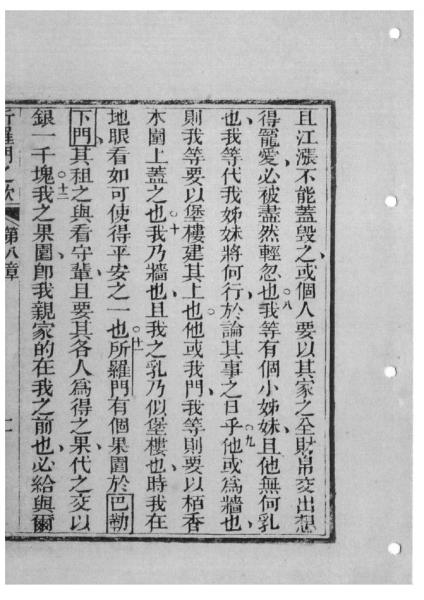 且江漲不能蓋毀之或個人要以其家之全財帛交出想
得寵愛必被盡然輕忽也○八我等有個小姊妹且他無何乳
也我等代我姊妹將何行於論其事之日乎○九他或為牆也
則我等要以堡樓建其上也他或我門我等則要以栢香
木圍上蓋之也○十我乃牆也且我之乳乃似堡樓也時我在
地眼看如可使得平安之一也○十一所羅門有個果園於巴勒
下門其租之與看守輩且要其各人為得之果代之交以
銀一千塊○十二我之果園即我親家的在我之前也必給與爾
所羅門之歌 第八章